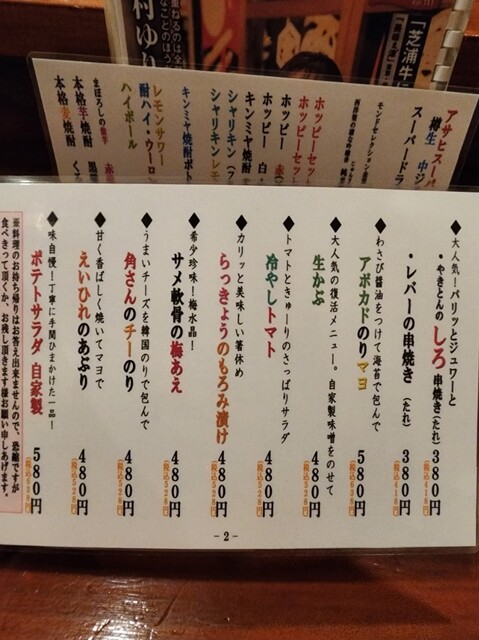 ◆大人気！パリッとジュワーと
・やきとんのしろ串焼き(たれ) 380円
(税込418円)
・レバーの串焼き (たれ) 380円
(税込418円)
◆わさび醤油をつけて海苔で包んで
アボカドのりマヨ 500円
◆大人気の復活メニュー。自家製味噌をのせて
生かぶ 480円
(税込528円)
◆トマトときゅーりのさっぱりサラダ
冷やしトマト 480円
(税込528円)
◆カリッと美味しい箸休め
らっきょうのもろみ漬け 480円
(税込528円)
◆希少珍味！梅水晶！
サメ軟骨の梅あえ 480円
(税込528円)
◆うまいチーズを韓国のりで包んで
角さんのチーのり 480円
(税込528円)
◆甘く香ばしく焼いてマヨで
えいひれのあぶり 480円
(税込528円)
◆味自慢！丁寧に手間ひまかけた一品！
ポテトサラダ 自家製 580円
※料理のお持ち帰りはお答え出来ませんので、恐縮ですが
食べきって頂くか、お残し頂きます様お願い申しあげます。
-2-
アサヒスーパ
樽生 中ジ
スーパードラ
モンドセレクション
ホッピーセッ
ホッピーセッ
ホッピー 赤
ホッピー 白・
キンミヤ焼酎
シャリキン (
シャリキンレモ
キンミヤ焼酎ボト
レモンサワー
酎ハイ・ウーロ
ハイボール
まぼろしの
本格芋焼酎 黒
本格麦焼酎 く
「芝浦牛に
村ゆり
重ねるのは全
なことのほう